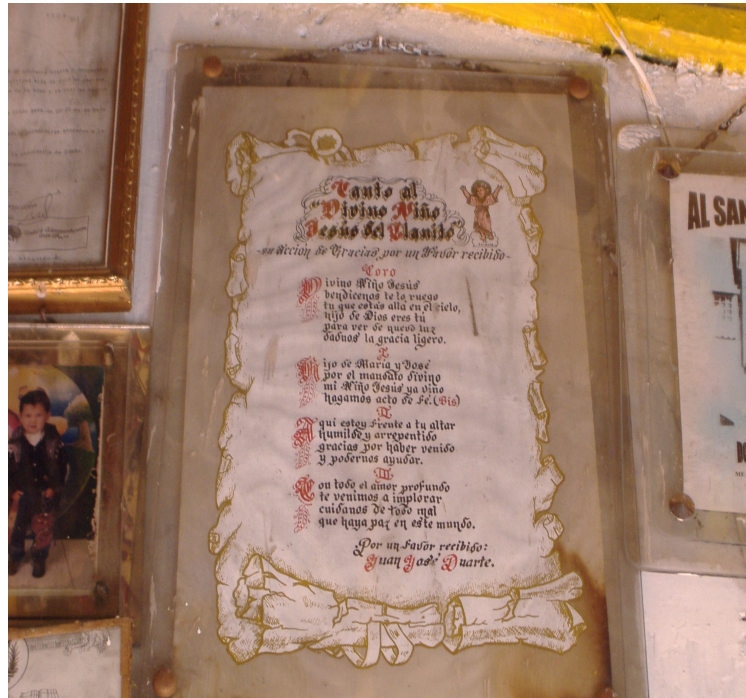 Canto al
"Divino Niño
Jesús del Llanito"
-en Acción de Gracias por un Favor recibido-
Coro
Divino Niño Jesús
bendicenos te lo ruego
tu que estás allá en el cielo,
hijo de Dios eres tú
para ver de nuevo luz
dadnos la gracia ligero.
I
Hijo de María y José
por el mandato divino
mi Niño Jesús ya vino
hagamos acto de Fé.(Bis)
II
Aqui estoy frente a tu altar
humilde y arrepentido
gracias por haber venido
y podernos ayudar.
III
Con todo el amor profundo
te venimos a implorar
cuidanos de todo mal
que haya paz en este mundo.
Por un Favor recibido:
Juan José Duarte.
AL SAN